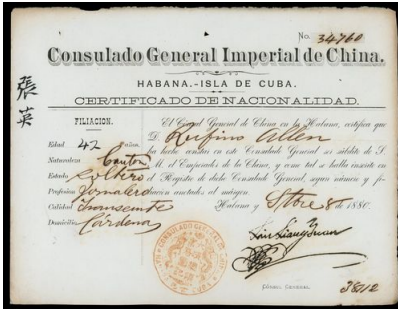 No. 34760
Consulado General Imperial de China.
HABANA.-ISLA DE CUBA.
CERTIFICADO DE NACIONALIDAD.
張英
FILIACION.
Edad 42 años.
Naturaleza Canton
Estado Soltero
Profesion Jornalero
Calidad Transeunte
Domicilio Cárdenas
El Consul General de China en la Habana, certifica que
D. Rufino Allen
ha hecho constar en este Consulado General ser súbdito de S.
M. el Emperador de la China, y como tal se halla inscrito en
el Registro de dicho Consulado General, segun número y fi-
liacion anotados al márgen.
Habana y Stre 8 de 1880.
CONSULADO GENERAL DE
Cónsul General.